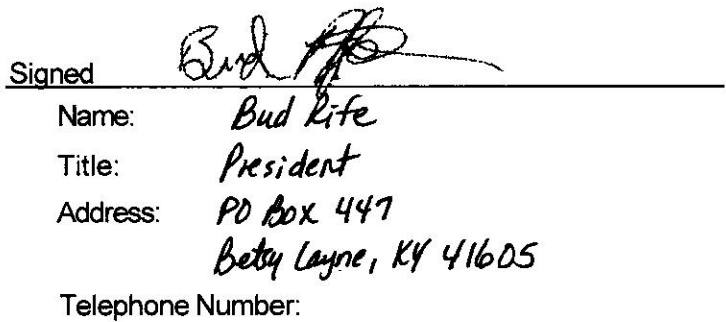 Signed Bud Rife
Name: Bud Rife
Title: President
Address: PO Box 447
Betsy Layne, KY 41605
Telephone Number: